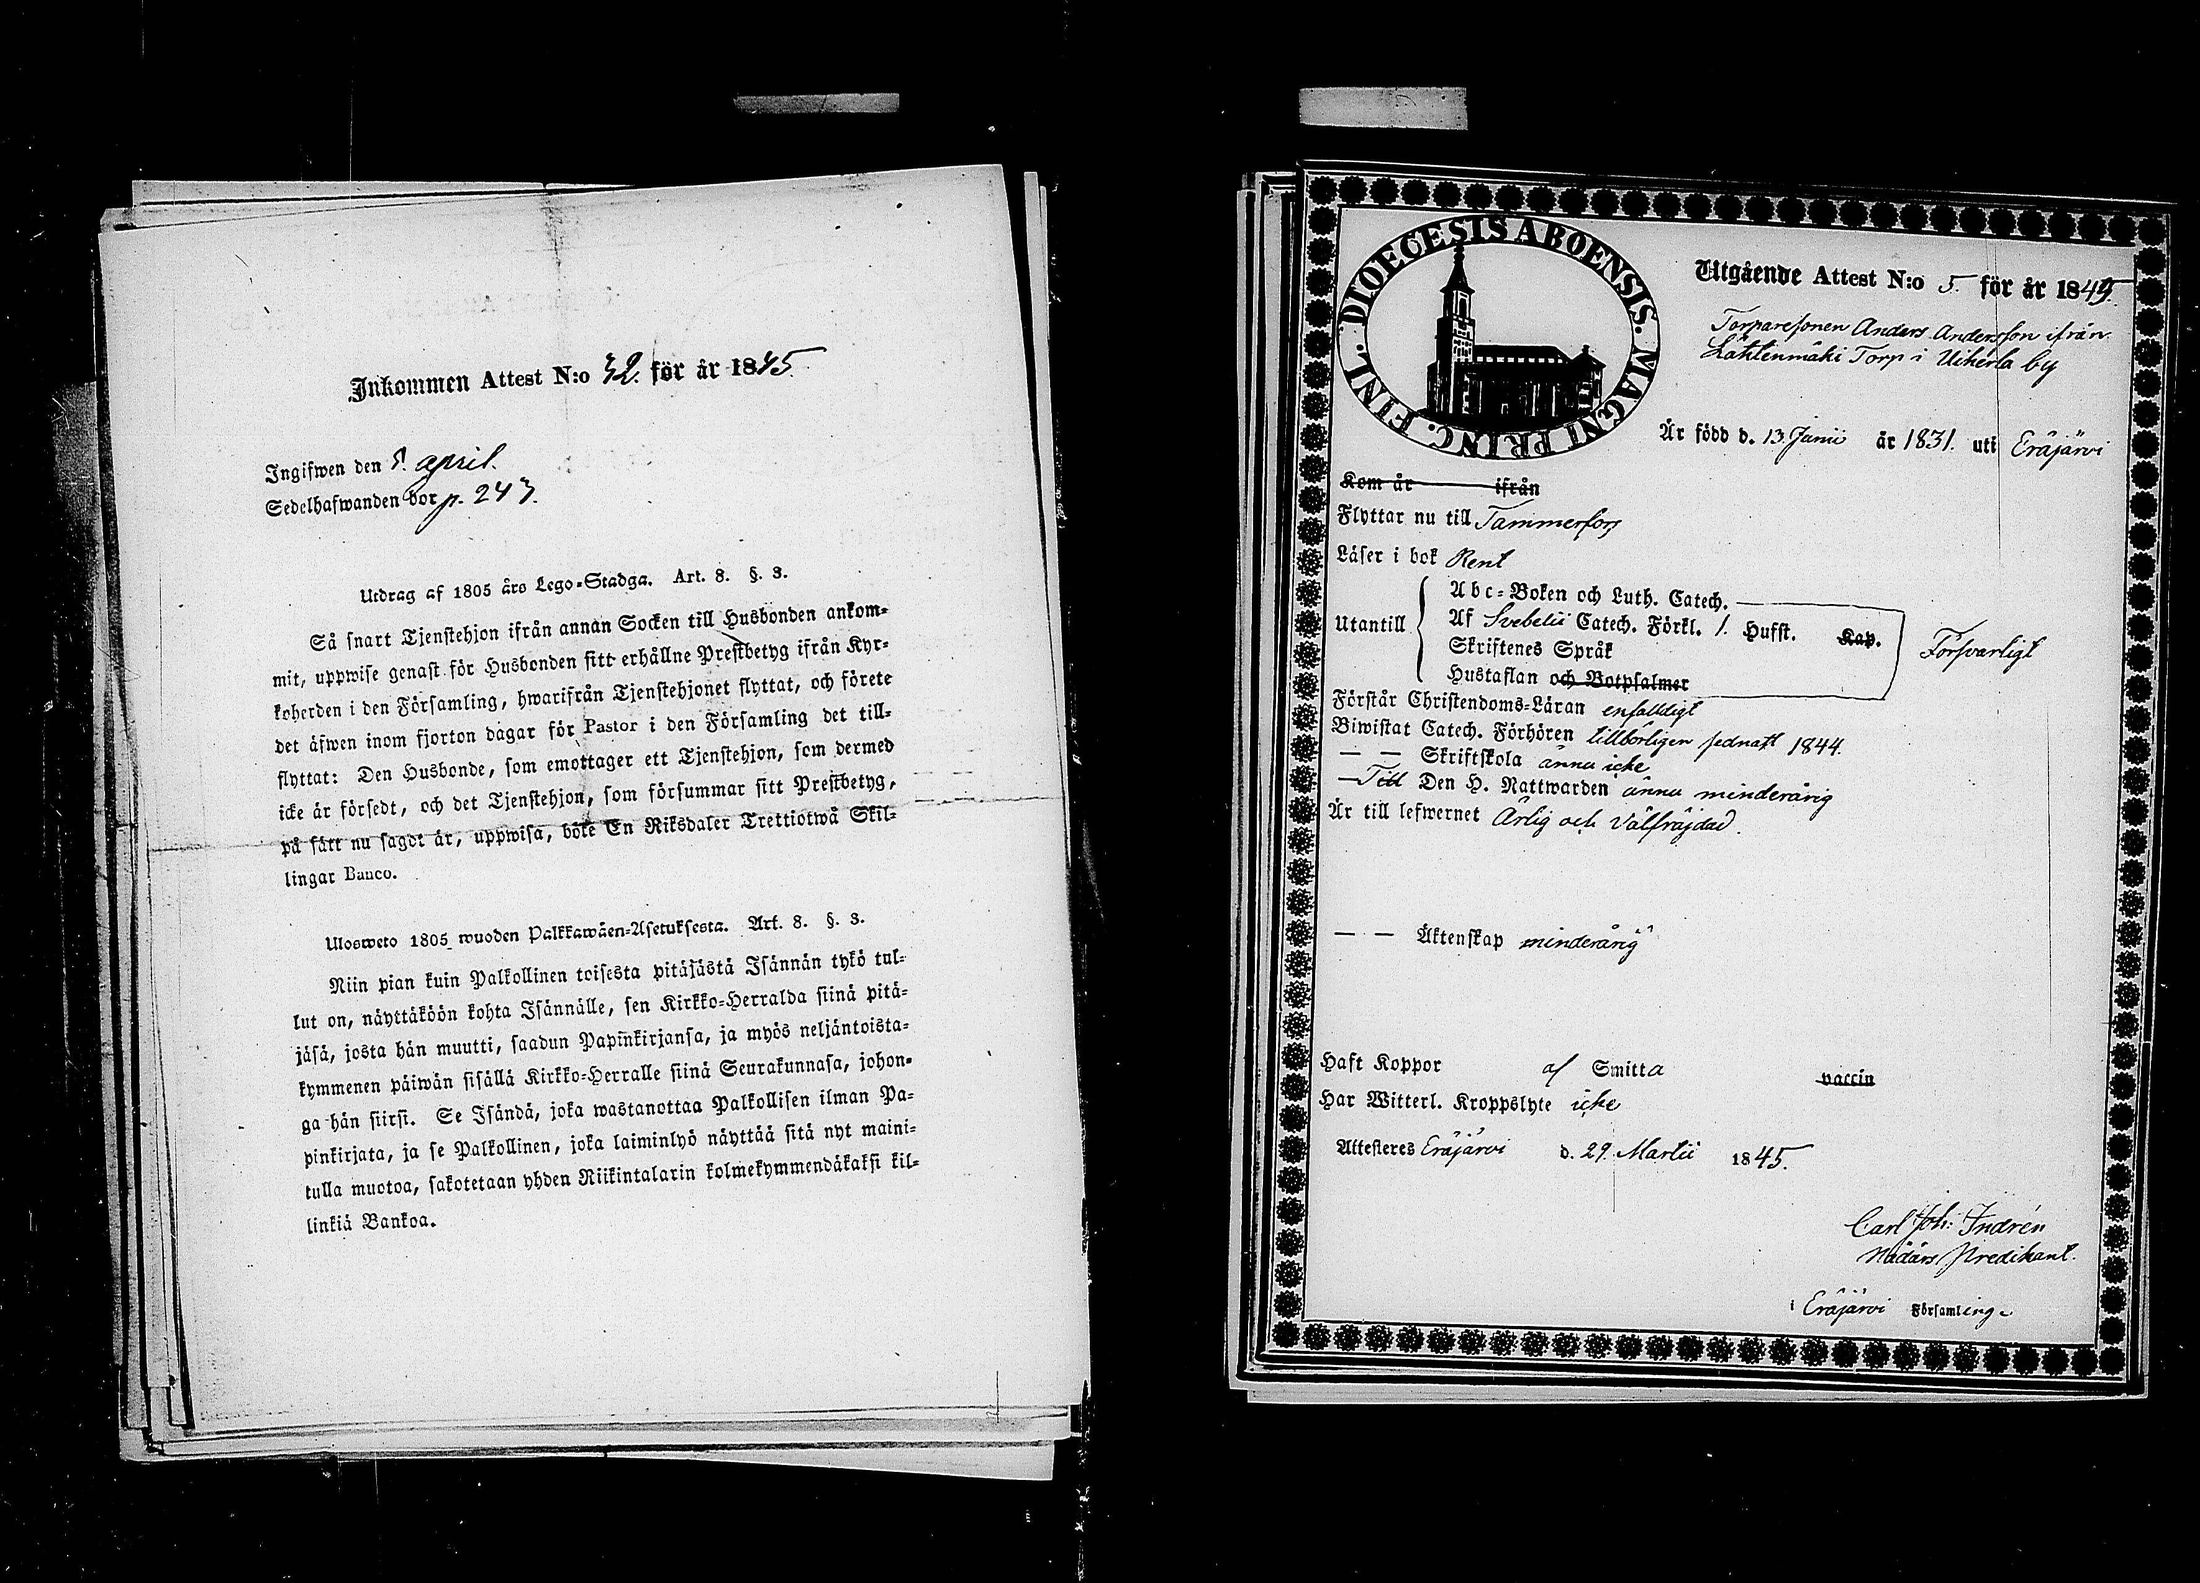 Inkommen Attest N:o 42. för år 1845.
Ingifwen den 5. april.
Sedelhafwanden bor p. 247.
Utdrag af 1805 års Lego-Stadga. Art. 8. §. 3.
Så snart Tjenstehjon ifrån annan Socken till Husbonden ankom-
mit, uppwise genast för Husbonden sitt erhållne Prestbetyg ifrån Kyr-
koherden i den Församling, hwarifrån Tjenstehjonet flyttat, och förete
det äfwen inom fjorton dagar för Pastor i den Församling det till-
flyttat: Den Husbonde, som emottager ett Tjenstehjon, som dermed
icke är försedt, och det Tjenstehjon, som försummar sitt Prestbetyg,
på sätt nu sagdt är, uppwisa, böte En Riksdaler Trettiotwå Skil-
lingar Banco.
Ulosweto 1805 wuoden Palkkawäen-Asetuksesta. Art. 8. §. 3.
Niin pian kuin Palkollinen toisesta pitäjästä Isännän tykö tul-
lut on, näyttäköön kohta Isännälle, sen Kirkko-Herralda siinä pitä-
jäsä, josta hän muutti, saadun Papinkirjansa, ja myös neljäntoista-
kymmenen päiwän sisällä Kirkko-Herralle siinä Seurakunnasa, johon-
ga hän siirsi. Se Isändä, joka wastanottaa Palkollisen ilman Pa-
pinkirjata, ja se Palkollinen, joka laiminlyö näyttää sitä nyt maini-
tulla muotoa, sakotetaan yhden Riikintalarin kolmekymmendäkaksi kil-
linkiä Bankoa.
DIOECESIS ABOENSIS. MAGNI PRINC. FINL.
Utgående Attest N:o 5. för år 1845.
Torparesonen Anders Andersson ifrån
Lähtenmäki Torp i Uiherla by
Är född d. 13 Junii år 1831. uti Eräjärvi
Kom år ifrån
Flyttar nu till Tammerfors
Läser i bok Rent
Utantill
Abc-Boken och Luth. Catech.
Af Svebelii Catech. Förkl. 1. Hufst. Kap.
Skriftenes Språk
Hustaflan och Botpsalmer
Försvarligt
Förstår Christendoms-Läran enfalldigt
Biwistat Catech. Förhören tillbörligen sednast 1844.
— — Skriftskola ännu icke
— Till Den H. Nattwarden ännu minderårig
Är till lefwernet Ärlig och Välfräjdad.
— — Äktenskap minderårig
Haft Koppor af Smitta vaccin
Har Witterl. Kroppslyte icke
Attesteres Eräjärvi d. 29 Martii 1845.
Carl Joh: Indrén
Nådårs Predikant.
i Eräjärvi Församling